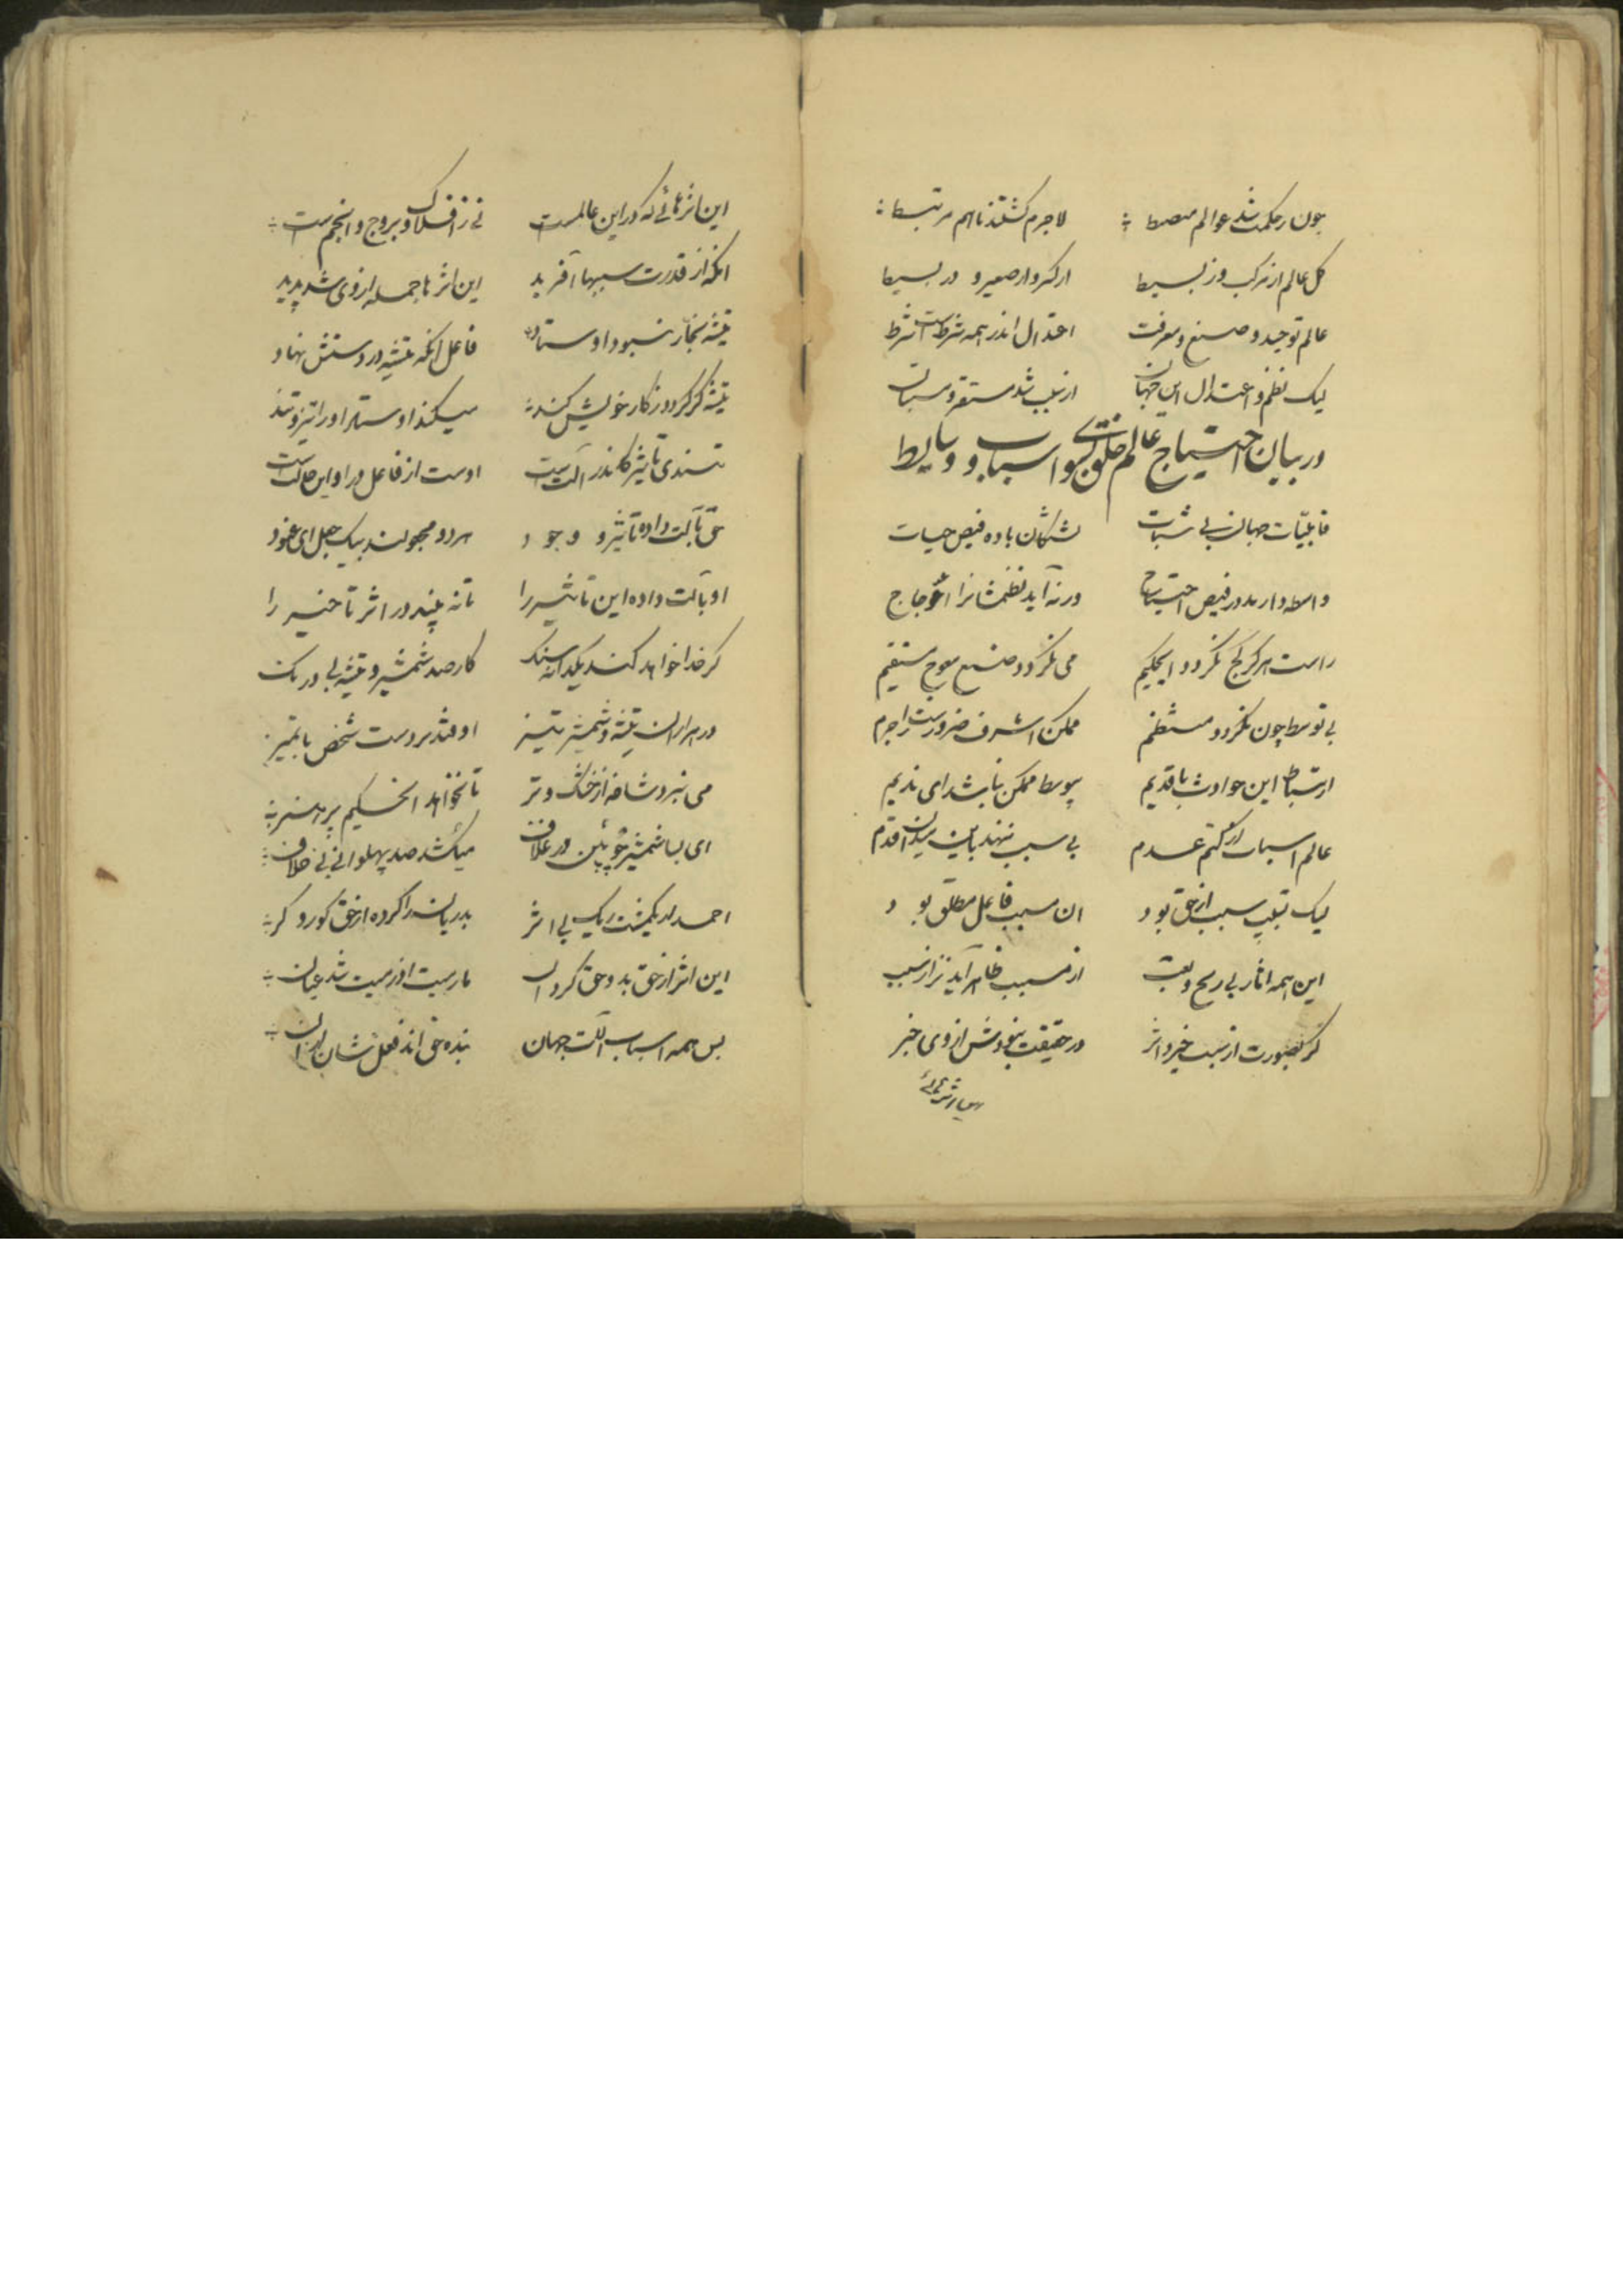 چون ز حکمت شد عوالم منضبط لاجرم گشتند باهم مرتبط
کل عالم از مرکب وز بسیط از کبیر و از صغیر و در بسیط
عالم توحید و صنع و معرفت اعتدال اندر همه شرطست شرط
لیک نظم و اعتدال این جهان از سبب شد مستقر و
در بیان احتیاج عالم خلق بسوی اسباب و وسایط
قابلیّات جهان بی ثبات نشکان باده فیض حیات
واسطه دارند در فیض احتیاج ورنه آید نظمشانرا اعوجاج
راست هرگز کج نگردد ایحکیم می نگردد صنع معوج مستقیم
بی توسط چون نگردد منتظم ممکن اشرف ضرورست لاجرم
ارتباط این حوادث با قدیم بیوسط ممکن نباشد ای ندیم
عالم اسباب از کتم عدم بی سبب ننهد باین میدان قدم
لیک تسبیب سبب از حق بود ان مسبب فاعل مطلق بود
این همه اثار بی رنج و تعب از مسبب ظاهر آید نز سبب
گر بصورت از سبب خیزد اثر در حقیقت نبودش از وی خبر
این اثرهائی
این اثرهائی که در این عالمست نی ز افلاک و بروج و انجم است
انکه از قدرت سببها آفرید این اثرها جمله از وی شد پدید
تیشه نجّار نبود اوستاد فاعل انکه تیشه در دستش نهاد
تیشه گر گردد ز کار خویش کند میکند اوستاد او را تیز و تند
تندی تاثیر کاندر آلت است اوست از فاعل در او این حالت است
حق بآلت داده تاثیر و وجود هر دو مجعولند بیک جعل ای عنود
او بآلت داده این تاثیر را تا نه بیند در اثر تاخیر را
گر خدا خواهد کند یکدانه سنک کار صد شمشیر و تیشه بی درنک
ور هزاران تیشه و شمشیر تیز اوفتد بر دست شخص باتمیز
می نبرد شاخه از خشک و تر تا نخواهد انحکیم پر هنر
ای بسا شمشیر چوبین در غلاف میکشد صد پهلوانی بی خلاف
احمد از یکمشت ریک بی اثر بدریان را کرده از حق کور و کر
این اثر از حق بد و حق کرد ان مارمیت اذ رمیت شد عیان
پس همه اسباب آلت جهان بنده حق اند فعل شان بدان